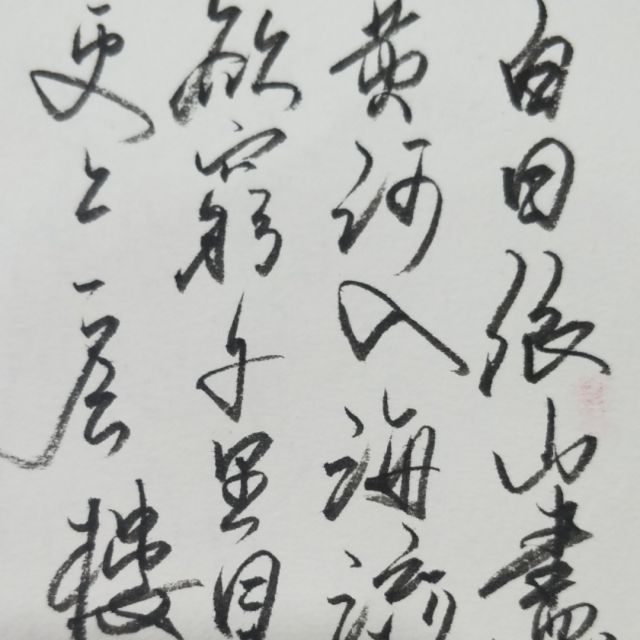 白日依山盡
黄河入海流
欲窮千里目
更上一层樓